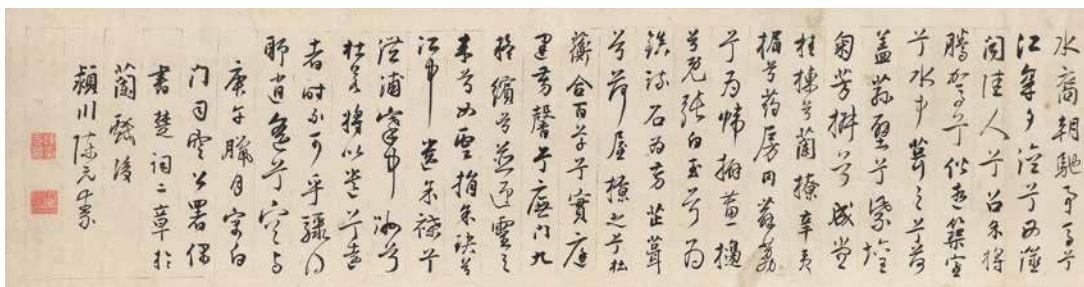 水裔朝馳予馬兮
江皋夕濟兮西澨
聞佳人兮召余將
騰駕兮偕逝築室
兮水中葺之兮荷
蓋蓀壁兮紫壇
匊芳椒兮成堂
桂棟兮蘭橑辛夷
楣兮葯房罔薜荔
兮為帷擗蕙櫋
兮既張白玉兮為
鎮疏石為芳芷葺
兮荷屋繚之兮杜
蘅合百草兮實庭
建芳馨兮廡門九
嶷繽兮並迎靈之
來兮如雲捐余袂兮
江中遺余褋兮
澧浦搴中洲兮
杜若將以遺兮遠
者時不可乎驟得
聊逍遙兮容與
庚午臘月寓白
門司空公署偶
書楚詞二章於
蘭後
潁川陳元素